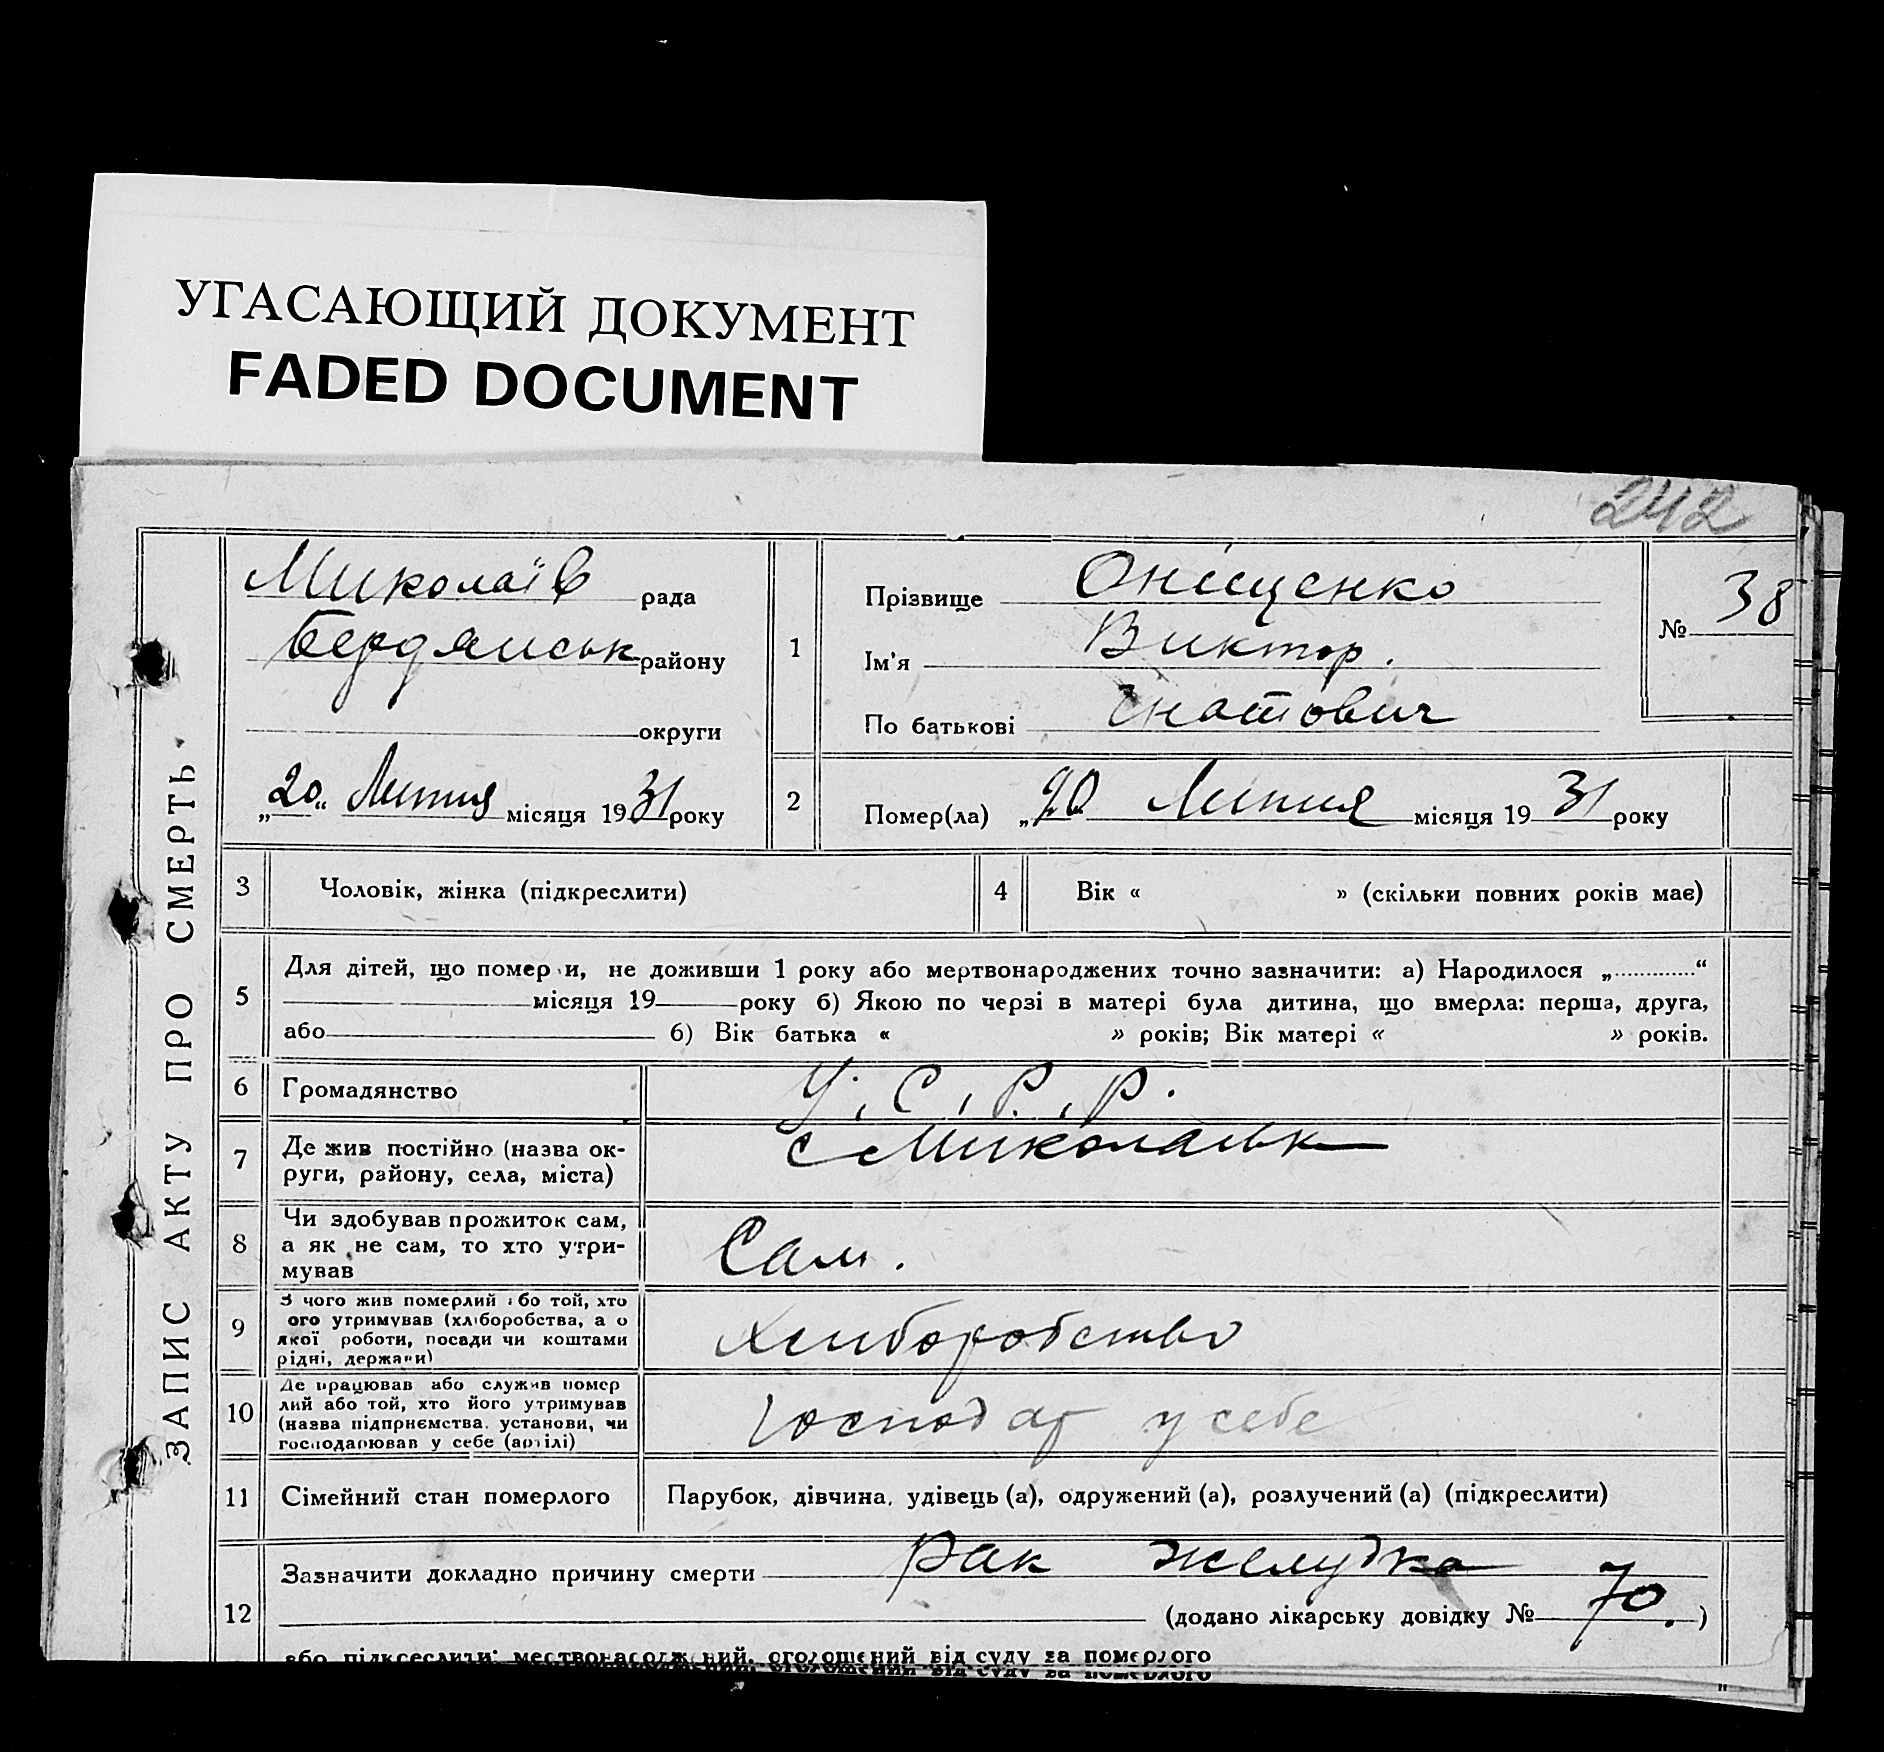 УГАСАЮЩИЙ ДОКУМЕНТ
FADED DOCUMENT
242
ЗАПИС АКТУ ПРО СМЕРТЬ.
Миколаїв рада
Бердянськ району
округи
„20“ Липня місяця 1931 року
1
Прізвище Онищенко
Ім'я Виктор.
По батькові Гнатович
№ 38
2
Помер(ла) „20 Липня місяця 1931 року
3 Чоловік, жінка (підкреслити)
4 Вік « » (скільки повних років має)
5
Для дітей, що помер и, не доживши 1 року або мертвонароджених точно зазначити: а) Народилося „............“
місяця 19 року б) Якою по черзі в матері була дитина, що вмерла: перша, друга,
або б) Вік батька « » років; Вік матері « » років.
6 Громадянство У.С.Р.Р.
7 Де жив постійно (назва ок-
руги, району, села, міста)
с Миколаївк
8 Чи здобував прожиток сам,
а як не сам, то хто утри-
мував
Сам.
9
З чого жив померлий бо той, хто
ого утримував (хліборобства, а о
якої роботи, посади чи коштами
рідні, держави)
Хлиборобство
10
Де працював або служив помер
лий або той, хто його утримував
(назва підприємства, установи, чи
господарював у себе (артілі)
Господар у себе
11 Сімейний стан померлого Парубок, дівчина, удівець (а), одружений (а), розлучений (а) (підкреслити)
12
Зазначити докладно причину смерти Рак желудка
(додано лікарську довідку № 70.)
або підкреслити: мертвонароджений, оголошений від суду за померлого